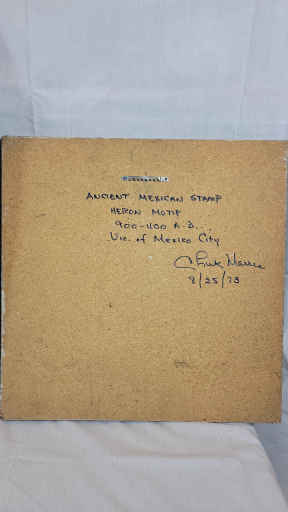 ANCIENT MEXICAN STAMP
HERON MOTIF
900-1100 A.D.
Vic. of Mexico City
Chuck
8/25/73